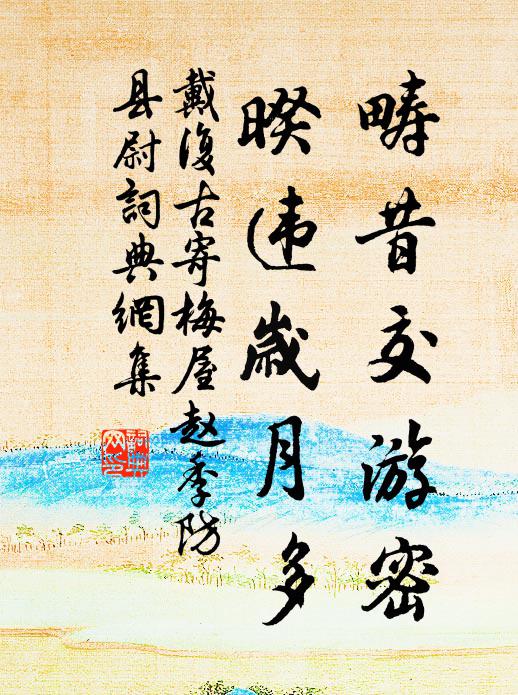 畴昔交游密
暌违歲月多
戴復古寄梅屋赵季防
县尉詞典網集